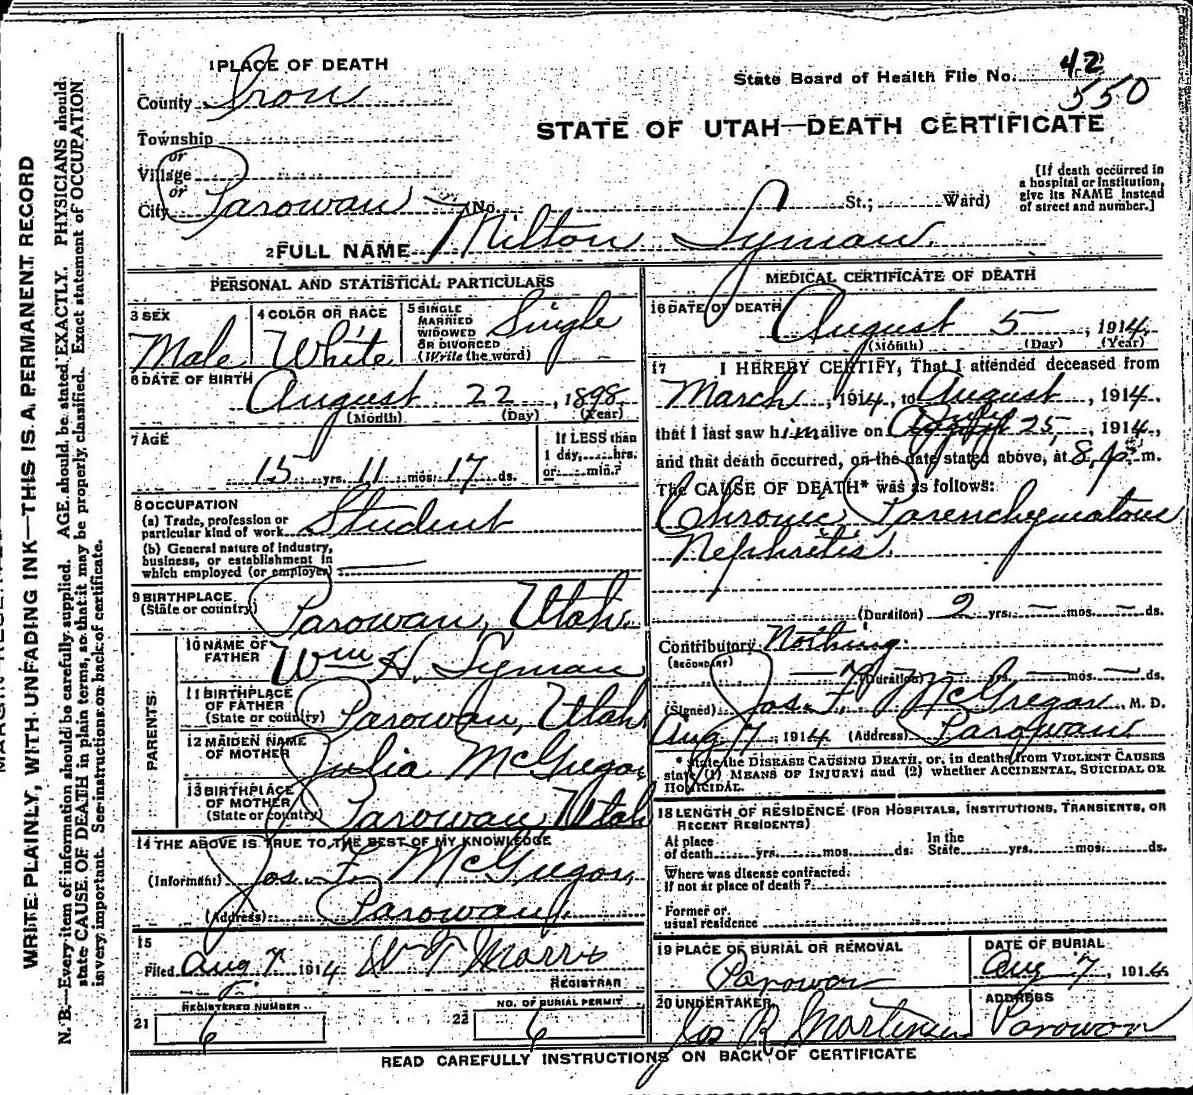 1 PLACE OF DEATH
County Iron
Township
or
Village
or
City Parowan No. St.; Ward)
State Board of Health File No. 42
550
STATE OF UTAH—DEATH CERTIFICATE
[If death occurred in
a hospital or institution,
give its NAME instead
of street and number.]
2 FULL NAME Milton Lyman
PERSONAL AND STATISTICAL PARTICULARS
3 SEX
Male
4 COLOR OR RACE
White
5 SINGLE
MARRIED
WIDOWED
OR DIVORCED
(Write the word)
Single
6 DATE OF BIRTH
August 22, 1898
(Month) (Day) (Year)
7 AGE
15 yrs. 11 mos. 17 ds.
If LESS than
1 day, hrs.
or min.?
8 OCCUPATION
(a) Trade, profession or
particular kind of work Student
(b) General nature of industry,
business, or establishment in
which employed (or employer)
9 BIRTHPLACE
(State or country) Parowan, Utah.
PARENTS
10 NAME OF
FATHER Wm H. Lyman
11 BIRTHPLACE
OF FATHER
(State or country) Parowan, Utah
12 MAIDEN NAME
OF MOTHER Julia McGregor
13 BIRTHPLACE
OF MOTHER
(State or country) Parowan, Utah
14 THE ABOVE IS TRUE TO THE BEST OF MY KNOWLEDGE
(Informant) Jos. F. McGregor,
(Address) Parowan.
15
Filed Aug 7, 1914 W Morris
REGISTRAR
REGISTERED NUMBER
21 6
NO. OF BURIAL PERMIT
22 6
MEDICAL CERTIFICATE OF DEATH
16 DATE OF DEATH
August 5, 1914
(Month) (Day) (Year)
17 I HEREBY CERTIFY, That I attended deceased from
March, 1914, to August, 1914,
that I last saw him alive on July 25, 1914,
and that death occurred, on the date stated above, at 8 p. m.
The CAUSE OF DEATH* was as follows:
Chronic Parenchymatous
Nephritis.
(Duration) 2 yrs. — mos. — ds.
Contributory Nothing.
(SECONDARY)
— (Duration) — yrs. — mos. — ds.
(Signed) Jos. F. McGregor, M. D.
Aug 7, 1914 (Address) Parowan.
* State the DISEASE CAUSING DEATH, or, in deaths from VIOLENT CAUSES
state (1) MEANS OF INJURY; and (2) whether ACCIDENTAL, SUICIDAL OR
HOMICIDAL.
18 LENGTH OF RESIDENCE (FOR HOSPITALS, INSTITUTIONS, TRANSIENTS, OR
RECENT RESIDENTS)
At place In the
of death yrs. mos. ds. State yrs. mos. ds.
Where was disease contracted
if not at place of death?
Former or
usual residence
19 PLACE OF BURIAL OR REMOVAL
Parowan
DATE OF BURIAL
Aug 7, 1914
20 UNDERTAKER
Jos R
ADDRESS
Parowan
READ CAREFULLY INSTRUCTIONS ON BACK OF CERTIFICATE
WRITE PLAINLY, WITH UNFADING INK—THIS IS A PERMANENT RECORD
N. B.—Every item of information should be carefully supplied. AGE should be stated EXACTLY. PHYSICIANS should
state CAUSE OF DEATH in plain terms, so that it may be properly classified. Exact statement of OCCUPATION
is very important. See instructions on back of certificate.